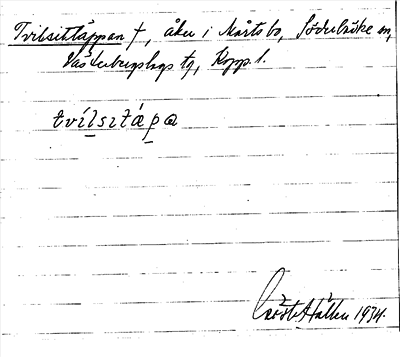 Tvilsittäppan †, åker i Mårtsbo, Söderbärke sn,
Västerbergslags tg, Kopp. l.
tvílsitápa
1934.